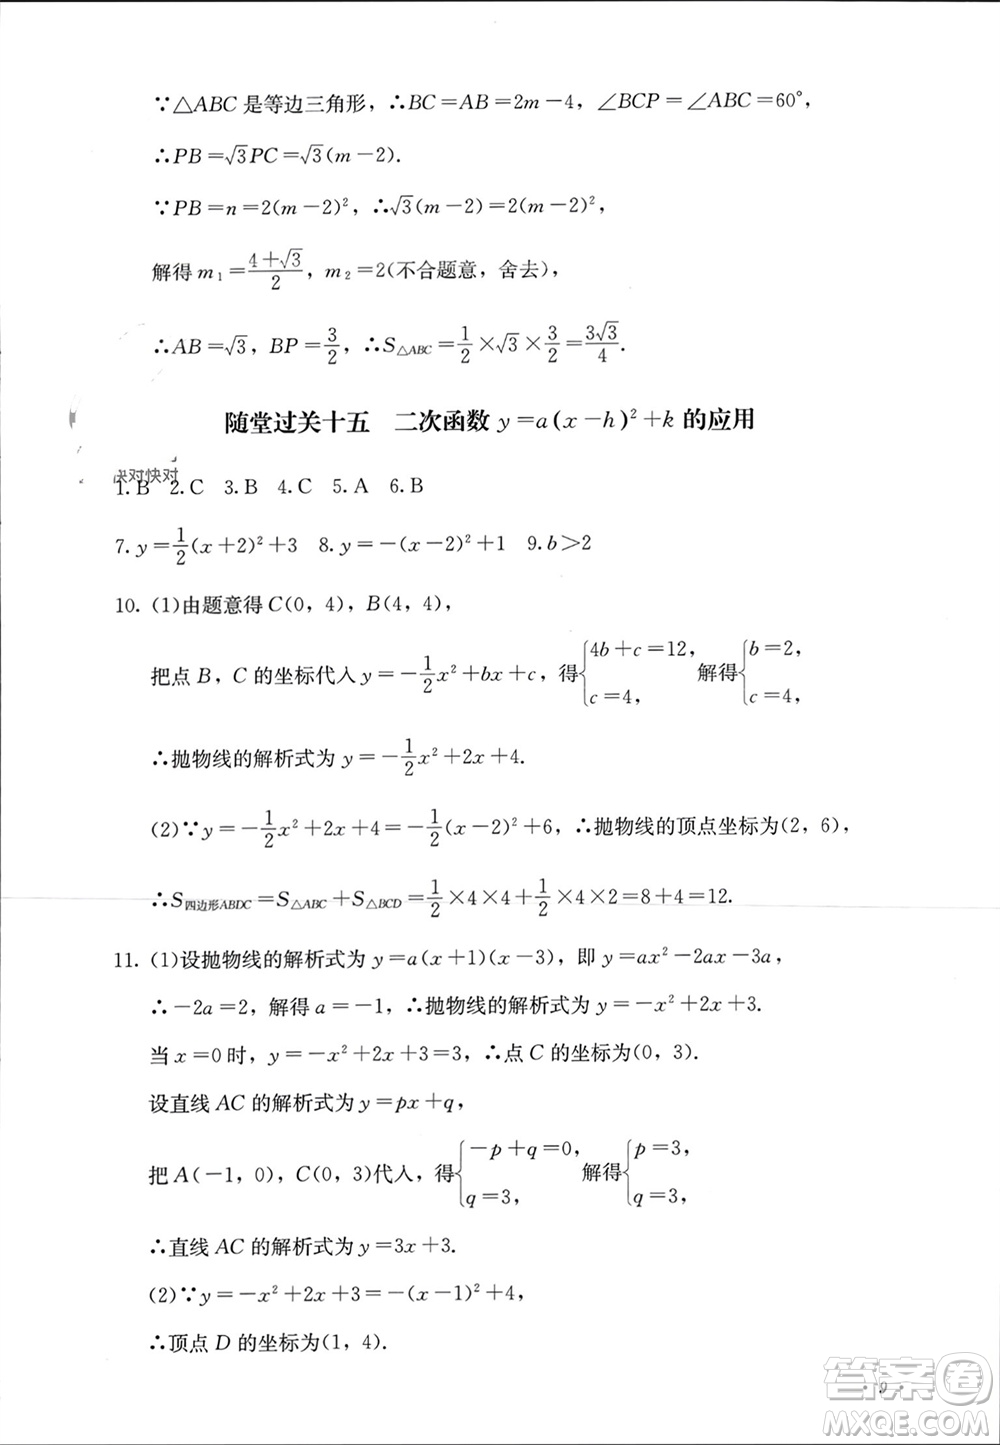 ∵△ABC 是等边三角形，∴BC＝AB＝2m－4，∠BCP＝∠ABC＝60°，
∴PB＝√3PC＝√3(m－2).
∵PB＝n＝2(m－2)²，∴√3(m－2)＝2(m－2)²，
解得 m₁＝(4＋√3)/2，m₂＝2(不合题意，舍去)，
∴AB＝√3，BP＝3/2，∴S△ABC＝1/2×√3×3/2＝3√3/4.
随堂过关十五 二次函数 y＝a(x－h)²＋k 的应用
快对快对
1. B 2. C 3. B 4. C 5. A 6. B
7. y＝1/2(x＋2)²＋3 8. y＝－(x－2)²＋1 9. b＞2
10. (1)由题意得 C(0，4)，B(4，4)，
把点 B，C 的坐标代入 y＝－1/2x²＋bx＋c，得{4b＋c＝12，c＝4，解得{b＝2，c＝4，
∴抛物线的解析式为 y＝－1/2x²＋2x＋4.
(2)∵y＝－1/2x²＋2x＋4＝－1/2(x－2)²＋6，∴抛物线的顶点坐标为(2，6)，
∴S四边形ABDC＝S△ABC＋S△BCD＝1/2×4×4＋1/2×4×2＝8＋4＝12.
11. (1)设抛物线的解析式为 y＝a(x＋1)(x－3)，即 y＝ax²－2ax－3a，
∴－2a＝2，解得 a＝－1，∴抛物线的解析式为 y＝－x²＋2x＋3.
当 x＝0 时，y＝－x²＋2x＋3＝3，∴点 C 的坐标为(0，3).
设直线 AC 的解析式为 y＝px＋q，
把 A(－1，0)，C(0，3)代入，得{－p＋q＝0，q＝3，解得{p＝3，q＝3，
∴直线 AC 的解析式为 y＝3x＋3.
(2)∵y＝－x²＋2x＋3＝－(x－1)²＋4，
∴顶点 D 的坐标为(1，4).
· 9 ·
答案圈
MXQE.COM